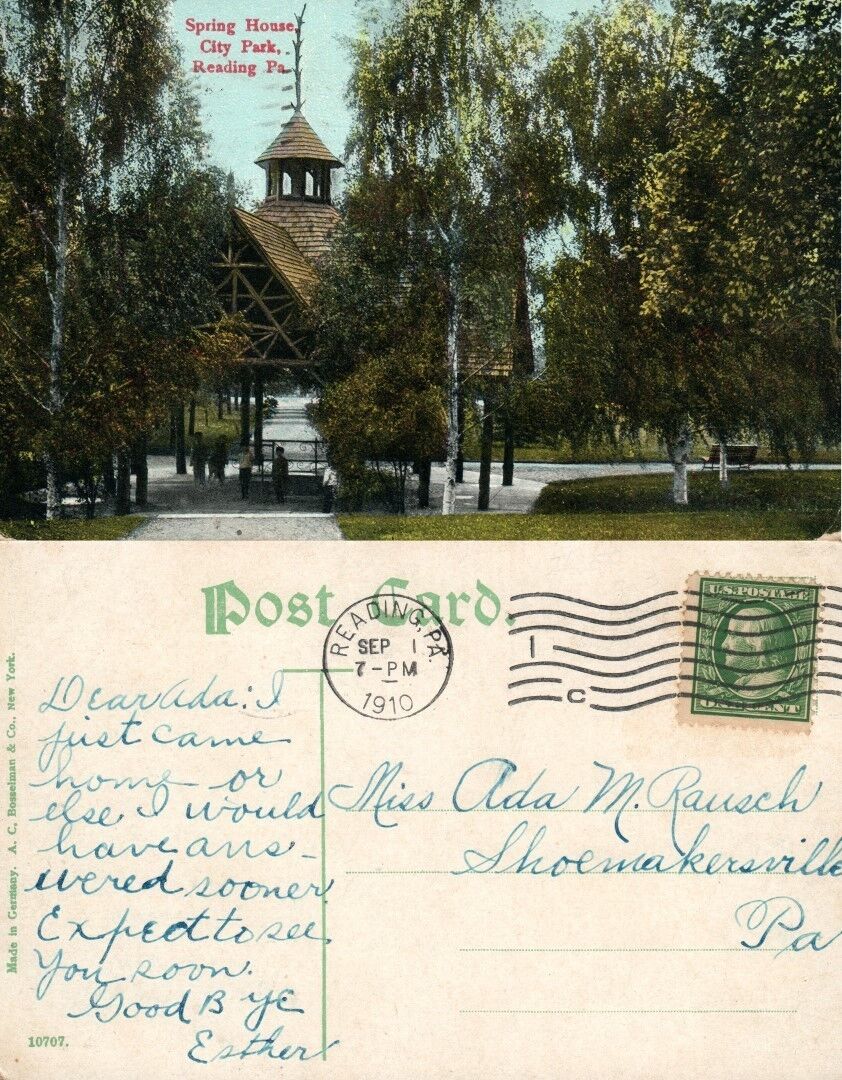 Spring House,
City Park,
Reading Pa.
Post Card.
READING, PA.
SEP 1
7-PM
1910
1
C
U.S. POSTAGE
ONE CENT
Made in Germany. A. C. Bosselman & Co., New York.
Dear Ada: I
just came
home or
else I would
have ans-
wered sooner.
Expect to see
You soon.
Good Bye
Esther
Miss Ada M. Rausch
Shoemakersville
Pa
10707.